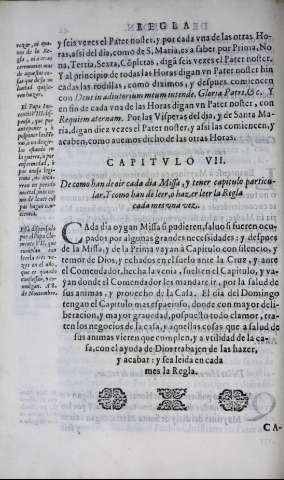 REGLA
y seis vezes el Pater noster, y por cada vna de las otras Ho-
ras, assi del dia, como de S. Maria, es a saber por Prima, No
na, Tertia, Sexta, Cōpletas, digā seis vezes el Pater noster.
Y al principio de todas las Horas digan vn Pater noster hin
cadas las rodillas, como diximos, y despues comiencen
con Deus in adiutorium meum intende. Gloria Patri, &c. Y
en fin de cada vna de las Horas digan vn Pater noster, con
Requiem æternam. Por las Visperas del dia, y de Santa Ma-
ria, digan diez vezes el Pater noster, y assi las comiencen, y
acaben, como auemos dicho de las otras Horas.
CAPITVLO VII.
De como han de oir cada dia Missa, y tener capitulo particu-
lar. Y como han de leer, o hazer leer la Regla
cada mes vna vez.
CAda dia oygan Missa si pudieren, saluo si fueren ocu-
pados por algunas grandes necessidades: y despues
de la Missa, y de la Prima vayan à Capitulo con silencio, y
temor de Dios, y echados en el suelo ante la Cruz, y ante
el Comendador, hecha la venia, fuelten el Capitulo, y va-
yan donde el Comendador les mandare ir, por la salud de
sus animas, y prouecho de la Casa. El dia del Domingo
tengan el Capitulo mas espacioso, donde con mayor deli-
beracion, y mayor grauedad, pospuesto todo clamor, tra-
ten los negocios de la casa, y aquellas cosas que a salud de
sus animas vieren que cumplen, y a vtilidad de la ca-
sa, con el ayuda de Dios trabajen de las hazer,
y acabar: y sea leida en cada
mes la Regla.
CA-
vezgar, ni
de la Re-
gla, ni a otras
ceremonias mas
de aquellas co-
sas que de su
voluntad quisie-
ren bazer.
El Papa Ino-
centio VIII. dis-
pensò, que por
que
ponerlos, y no po-
nerlos
no
estando en
la guerra, o por
enfermedad, o
por muda legi-
tima, no incu-
rran en pecado
mortal,